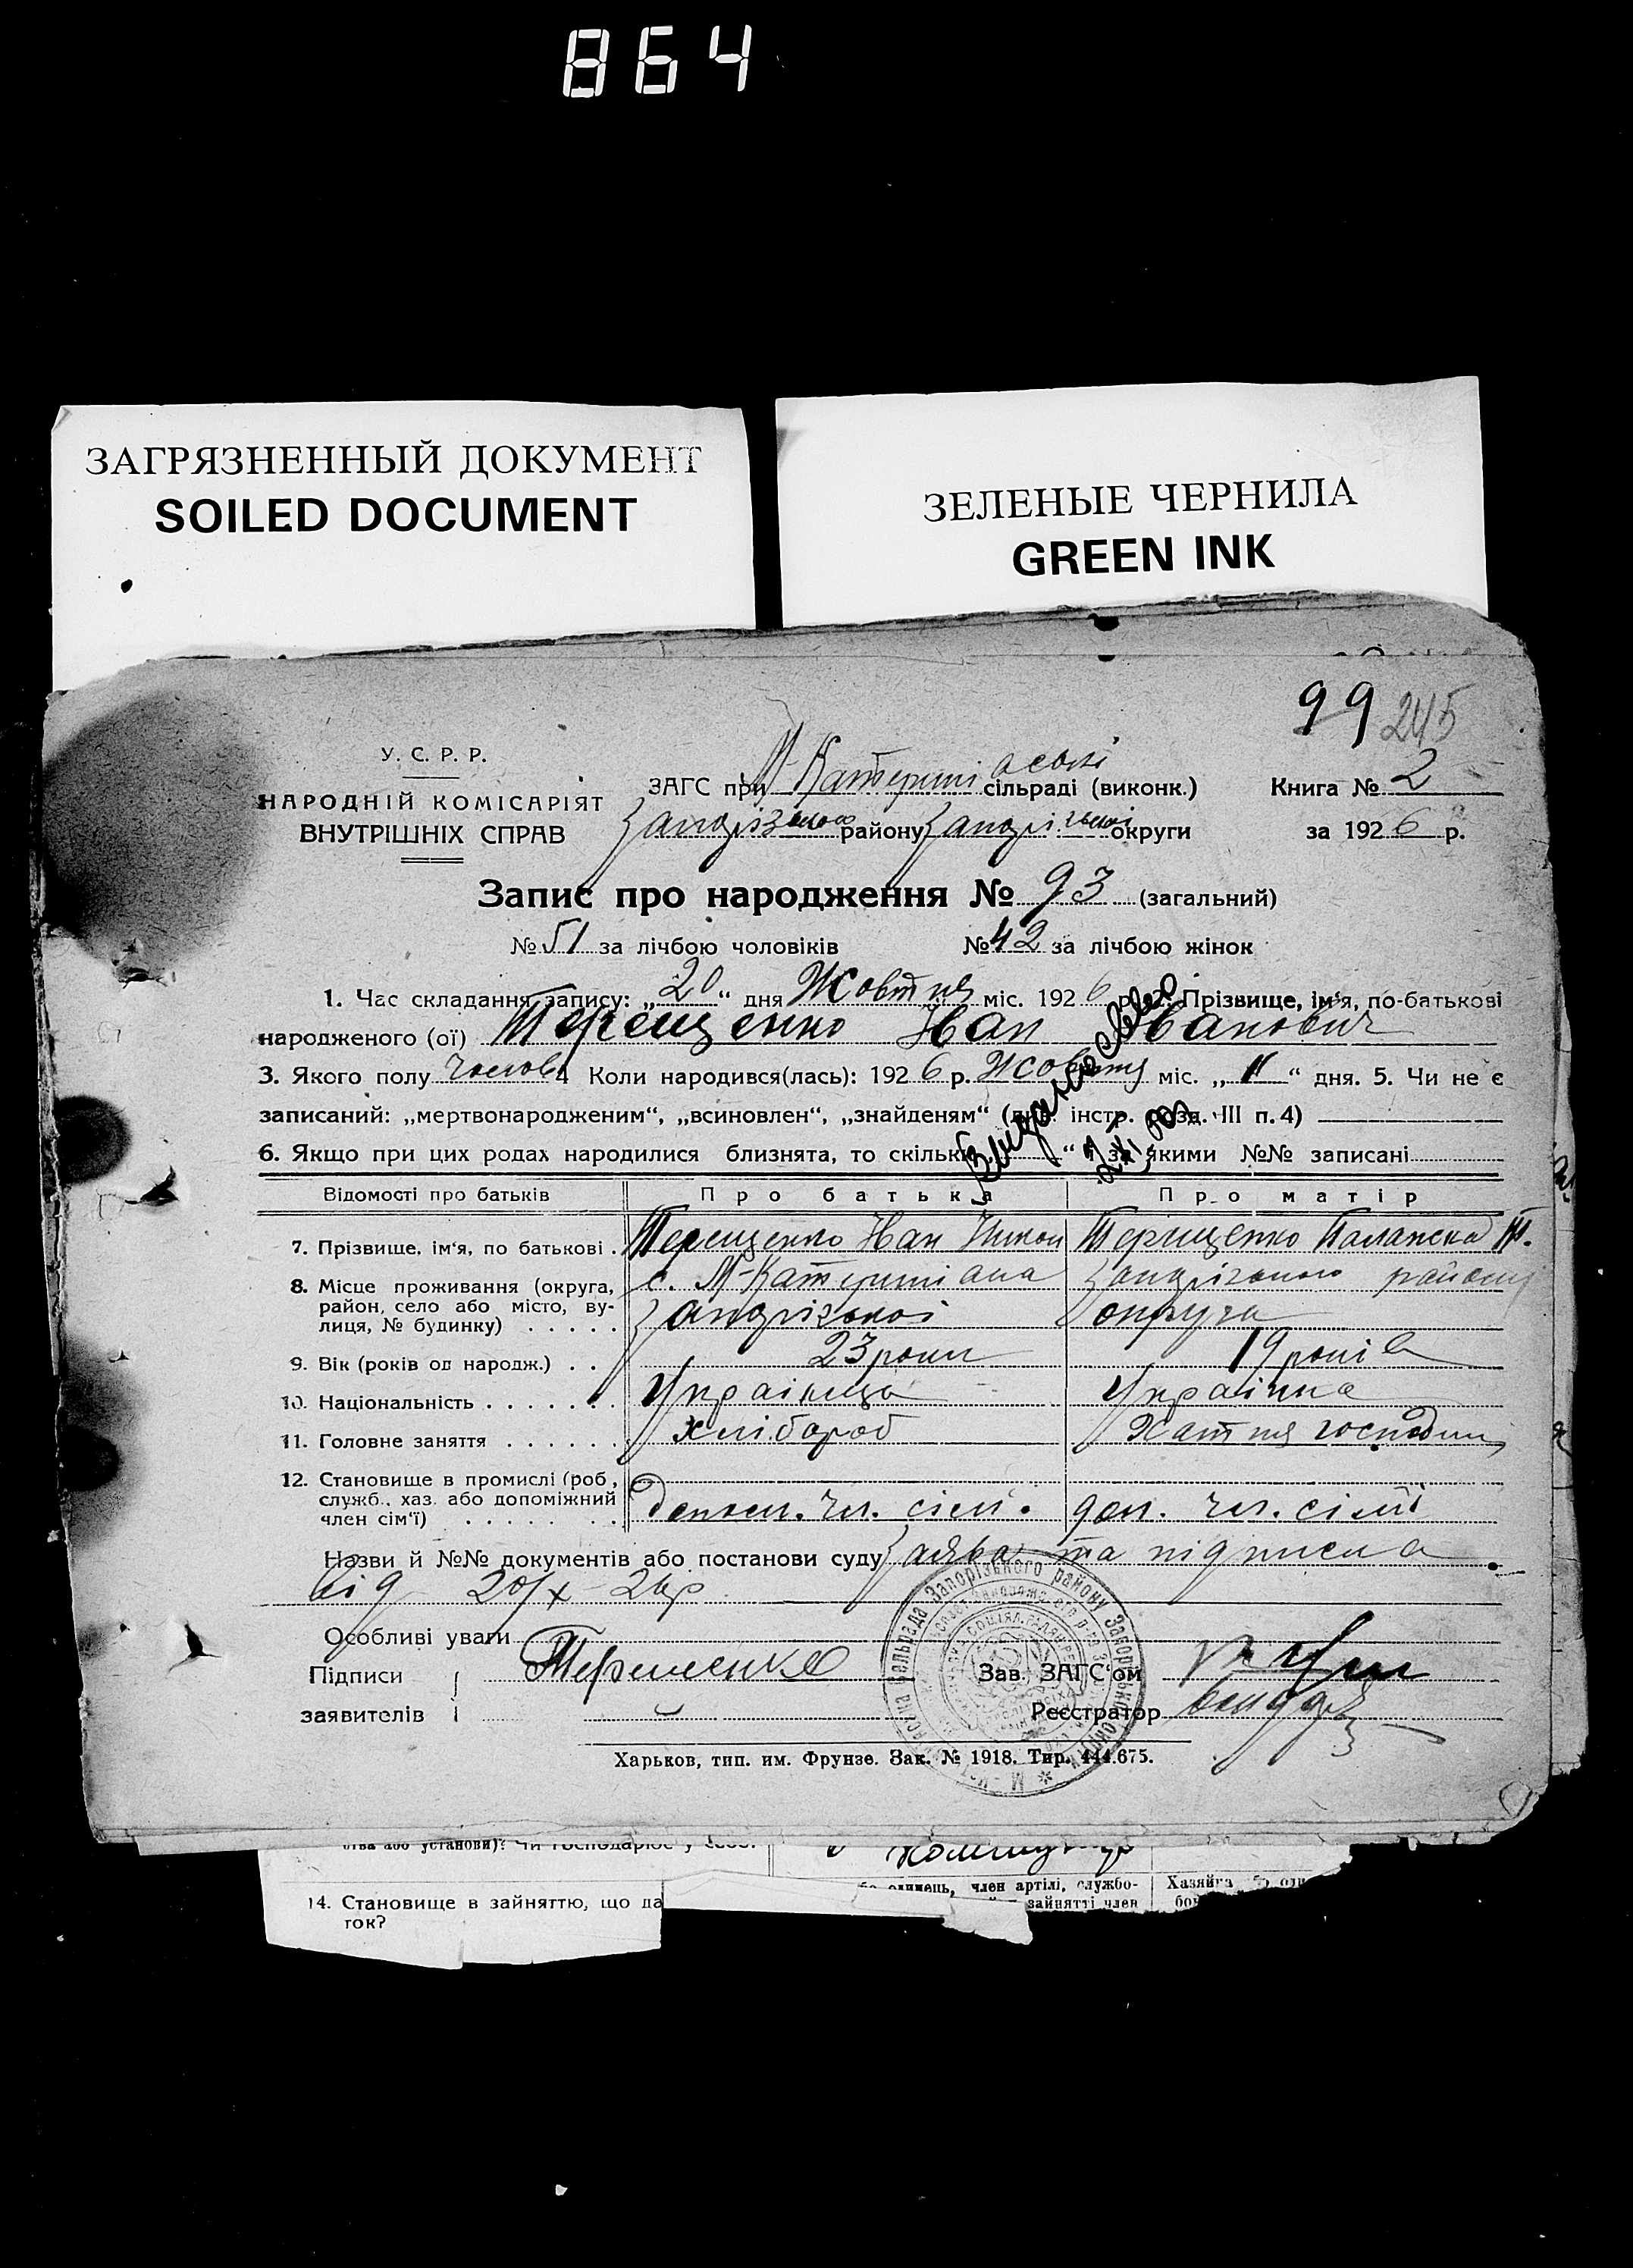 864
ЗАГРЯЗНЕННЫЙ ДОКУМЕНТ
SOILED DOCUMENT
ЗЕЛЕНЫЕ ЧЕРНИЛА
GREEN INK
99 245
У. С. Р. Р.
НАРОДНІЙ КОМІСАРІЯТ
ВНУТРІШНІХ СПРАВ
ЗАГС при М-Катерині аські сільраді (виконк.) Книга № 2
Запорізького району Запорізької округи за 1926 р.
Запис про народження № 93 (загальний)
№ 51 за лічбою чоловіків № 42 за лічбою жінок
1. Час складання запису: „20“ дня Жовтня міс. 1926 р. 2. Прізвище, ім'я, по-батькові
народженого (ої) Терещенко Іван Іванович
3. Якого полу чолов. 4 Коли народився(лась): 1926 р. Жовтня міс. „11“ дня. 5. Чи не є
записаний: „мертвонародженим“, „всиновлен“, „знайденям“ (див. інстр. розд. III п. 4)
6. Якщо при цих родах народилися близнята, то скільки „ “ за якими №№ записані
Відомості про батьків Про батька Про матір
7. Прізвище, ім'я, по батькові . Терещенко Іван Терещенко Т.
8. Місце проживання (округа, с. М-Катериніана Запорізького району
район, село або місто, ву-
лиця, № будинку) . . . . . Запорізької округа
9. Вік (років од народж.) . . 23 роки 19 років
10. Національність . . . . . . . Українець Українка
11. Головне заняття . . . . . . Хлібороб Хатня господин
12. Становище в промислі (роб.,
служб., хаз. або допоміжний
член сім'ї) . . . . . . . . чл. сім'ї. доп. чл. сім'ї
Назви й №№ документів або постанови суду Заява та підписка
від 20/X-26 р.
Особливі уваги
Підписи Терещенко Зав. ЗАГС'ом
заявителів Реєстратор
Харьков, тип. им. Фрунзе. Зак. № 1918. Тир. 444.675.
ства або установи)? Чи господарює у
14. Становище в зайняттю, що да
ток?
одинець, член артілі, службо-
зайнятті член
Хазяїн